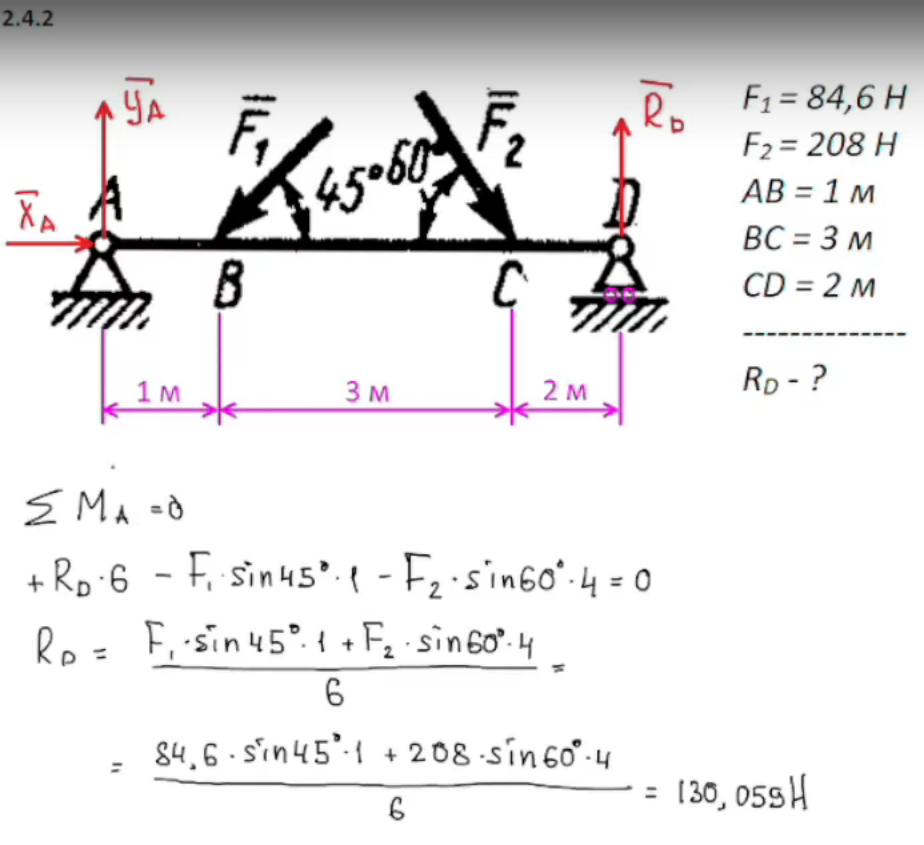 2.4.2
y̅_A F̅₁ 45° 60° F̅₂ R̅_D
X̅_A A D
B C
1 м 3 м 2 м
F₁ = 84,6 Н
F₂ = 208 Н
AB = 1 м
BC = 3 м
CD = 2 м
--------------
R_D - ?
∑ M_A = 0
+ R_D · 6 - F₁ · sin45° · 1 - F₂ · sin60° · 4 = 0
R_D = (F₁ · sin45° · 1 + F₂ · sin60° · 4) / 6 =
= (84,6 · sin45° · 1 + 208 · sin60° · 4) / 6 = 130,059 Н